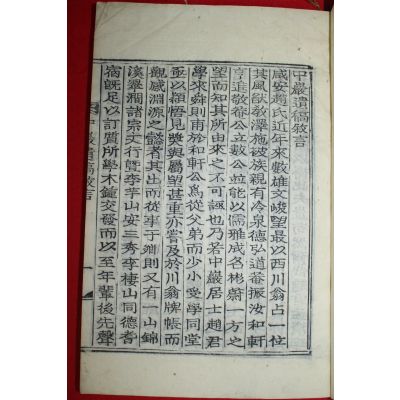 中巖遺稿敍言
咸安趙氏近年來數雄文峻望最以西川翁占一位
其風猷敎澤施被族親有冷泉德弘道菴振汝和軒
亨進敬菴公立數公並能以儒雅成名彬蕭一方之
望而知其所由來之不可誣也乃若中巖居士趙君
學來舜則甫於和軒公爲從父弟而少小受學同堂
並以穎悟見奬與屬望甚重亦嘗及於川翁牌帳而
觀感淵源之懿者其出而從事于鄕則又有一山錦
溪翠澗諸宗丈行李芋山安三秀李棲山同德耆
宿旣足以訂質所學木鍾交發而以至年輩後先聲
中巖遺稿敍言
一